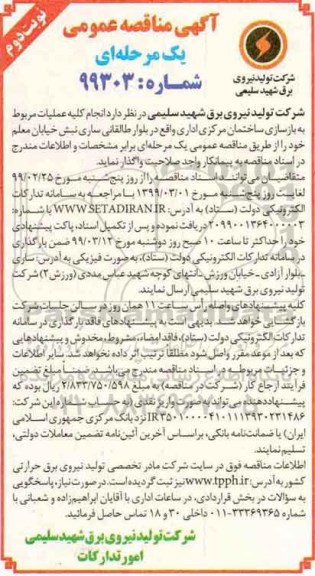 نوبت دوم
آگهی مناقصه عمومی
یک مرحله‌ای
شماره: ۹۹۳۰۳
شرکت تولید نیروی
برق شهید سلیمی
شرکت تولید نیروی برق شهید سلیمی در نظر دارد انجام کلیه عملیات مربوط
به بازسازی ساختمان مرکزی اداری واقع در بلوار طالقانی ساری نبش خیابان معلم
خود را از طریق مناقصه عمومی یک مرحله‌ای برابر مشخصات و اطلاعات مندرج
در اسناد مناقصه به پیمانکار واجد صلاحیت واگذار نماید.
متقاضیان می‌توانند اسناد مناقصه را از روز پنج‌شنبه مورخ ۹۹/۰۲/۲۵
لغایت روز پنج‌شنبه مورخ ۱۳۹۹/۰۳/۰۱ با مراجعه به سامانه تدارکات
الکترونیکی دولت (ستاد) به آدرس: WWW.SETADIRAN.IR با شماره:
۲۰۹۹۰۰۱۳۶۴۰۰۰۰۰۳ دریافت نموده و پس از تکمیل اسناد، پاکت پیشنهادی
خود را حداکثر تا ساعت ۱۰ صبح روز دوشنبه مورخ ۹۹/۰۳/۱۲ ضمن بارگذاری
در سامانه تدارکات الکترونیکی دولت (ستاد)، به صورت فیزیکی به آدرس: ساری
ـ بلوار آزادی ـ خیابان ورزش ـ انتهای کوچه شهید عباس مددی (ورزش ۲) شرکت
تولید نیروی برق شهید سلیمی ارسال نمایند.
کلیه پیشنهادهای واصله رأس ساعت ۱۱ همان روز در سالن جلسات شرکت
بازگشایی خواهد شد. بدیهی است به پیشنهادهای فاقد بارگذاری در سامانه
تدارکات الکترونیکی دولت (ستاد)، فاقد امضاء، مشروط، مخدوش و پیشنهادهایی
که بعد از موعد مقرر واصل شود مطلقاً ترتیب اثر داده نخواهد شد. سایر اطلاعات
و جزئیات مربوطه در اسناد مناقصه مندرج می‌باشد. ضمناً مبلغ تضمین
فرآیند ارجاع کار (شرکت در مناقصه) به مبلغ ۲/۸۳۳/۷۵۰/۵۹۸ ریال بوده که
پیشنهاددهنده می‌تواند به صورت واریز نقدی (به حساب شبای این شرکت:
IR۳۵۰۱۰۰۰۰۴۱۰۱۱۱۳۹۳۰۲۳۱۴۸۶ نزد بانک مرکزی جمهوری اسلامی
ایران) یا ضمانت‌نامه بانکی، براساس آخرین آئین‌نامه تضمین معاملات دولتی،
تسلیم نمایند.
اطلاعات مناقصه فوق در سایت شرکت مادر تخصصی تولید نیروی برق حرارتی
کشور به آدرس: www.tpph.ir نیز ثبت گردیده است. در صورت نیاز، پاسخگویی
به سؤالات در بخش قراردادی، در ساعات اداری با آقایان ابراهیم‌زاده و شعبانی با
شماره ۳۳۳۶۹۳۶۵-۰۱۱ داخلی ۳۰ و ۱۸ تماس حاصل فرمائید.
شرکت تولید نیروی برق شهید سلیمی
امور تدارکات